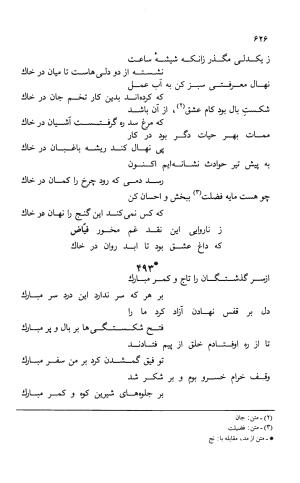 ۶۲۶
ز یکدلی مگذر زانکه شیشهٔ ساعت
نشسته از دو دلی هاست تا میان در خاک
نهال معرفتی سبز کن به آب عمل
که کرده‌اند بدین کار تخم جان در خاک
شکست بال بود کام عشق(۲)، از آن باشد
که مرغ سدره گرفتست آشیان در خاک
ممات بهر حیات دگر بود در کار
پی نهال کند ریشه باغبان در خاک
به پیش تیر حوادث نشانه‌ایم اکنون
رسد دمی که رود چرخ را کمان در خاک
چو هست مایه فضیلت(۳) ببخش و احسان کن
که کس نمی‌کند این گنج را نهان در خاک
ز ناروایی این نقد غم مخور فیّاض
که داغ عشق بود تا ابد روان در خاک
*۴۹۳
از سر گذشتگان را تاج و کمر مبارک
بر هر که سر ندارد این درد سر مبارک
دل بر قفس نهادن آزاد کرد ما را
فتح شکستگی‌ها بر بال و پر مبارک
تا از ره اوفتادم خلق از پیم فتادند
توفیق گمشدن کرد بر من سفر مبارک
وقف خرام خسرو بوم و بر شکر شد
بر جلوه‌های شیرین کوه و کمر مبارک
(۲) ـ متن: جان
(۳) ـ متن: فضیلت
* ـ متن از مد، مقابله با: نج